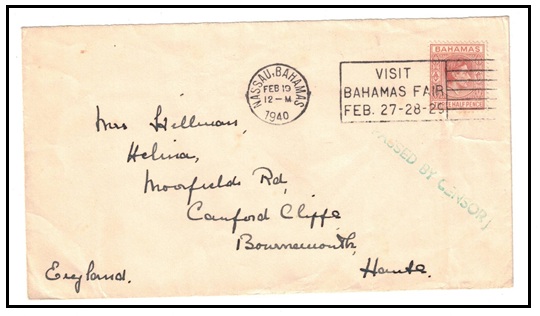 BAHAMAS
HALF PENCE
NASSAU, BAHAMAS
FEB 19
12-M
1940
VISIT
BAHAMAS FAIR
FEB. 27-28-29
PASSED BY CENSOR
Mrs Hillman,
Helina,
Moorfields Rd,
Canford Cliffs
Bournemouth,
Hants.
England.